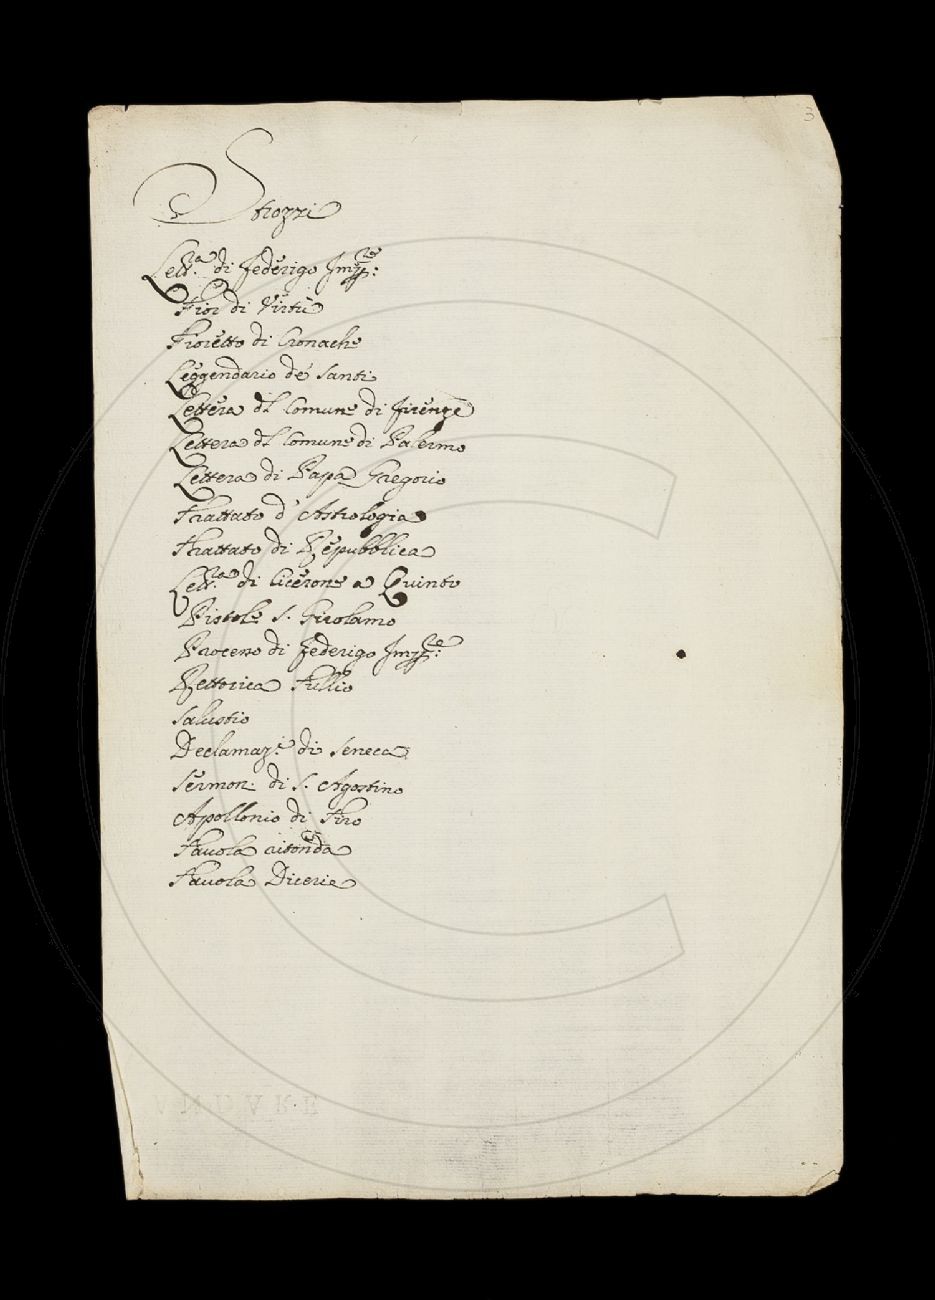 3
Strozzi
Lett.ra di Federigo Imp.re:
Fior di Virtù
Fioretto di Cronache
Leggendario de' Santi
Lettera del Comune di Firenze
Lettera del Comune di Palermo
Lettera di Papa Gregorio
Trattato d' Astrologia
Trattato di Repubblica
Lett.ra di Cicerone a Quinto
Pistole S. Girolamo
Processo di Federigo Imp.re:
Rettorica Tullio
Salustio
Declamaz.e di Seneca
Sermon: di S. Agostino
Apollonio di Tiro
Tavola ritonda
Tavola Dicerie